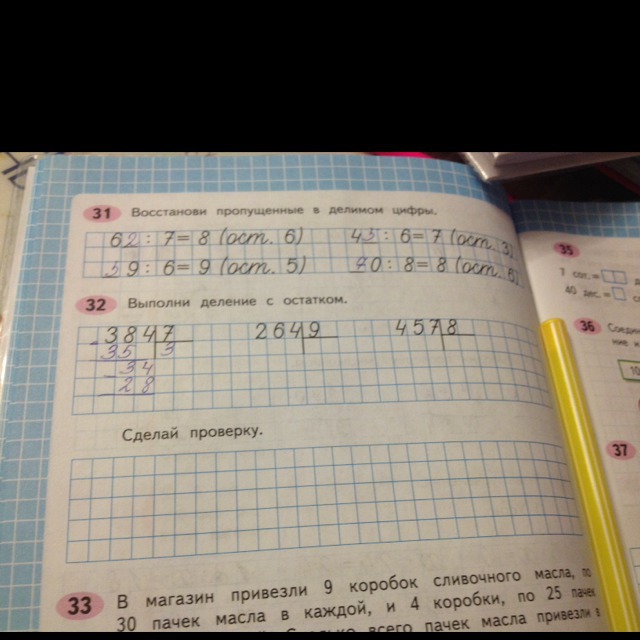 31 Восстанови пропущенные в делимом цифры.
62 : 7 = 8 (ост. 6) 45 : 6 = 7 (ост. 3)
59 : 6 = 9 (ост. 5) 70 : 8 = 8 (ост. 6)
32 Выполни деление с остатком.
384 7 264 9 457 8
35 3
34
28
Сделай проверку.
33 В магазин привезли 9 коробок сливочного масла, по
30 пачек масла в каждой, и 4 коробки, по 25 пачек
Сколько всего пачек масла привезли в
35
7 сот. =
40 дес. =
36 Соедин
ние и
10
37